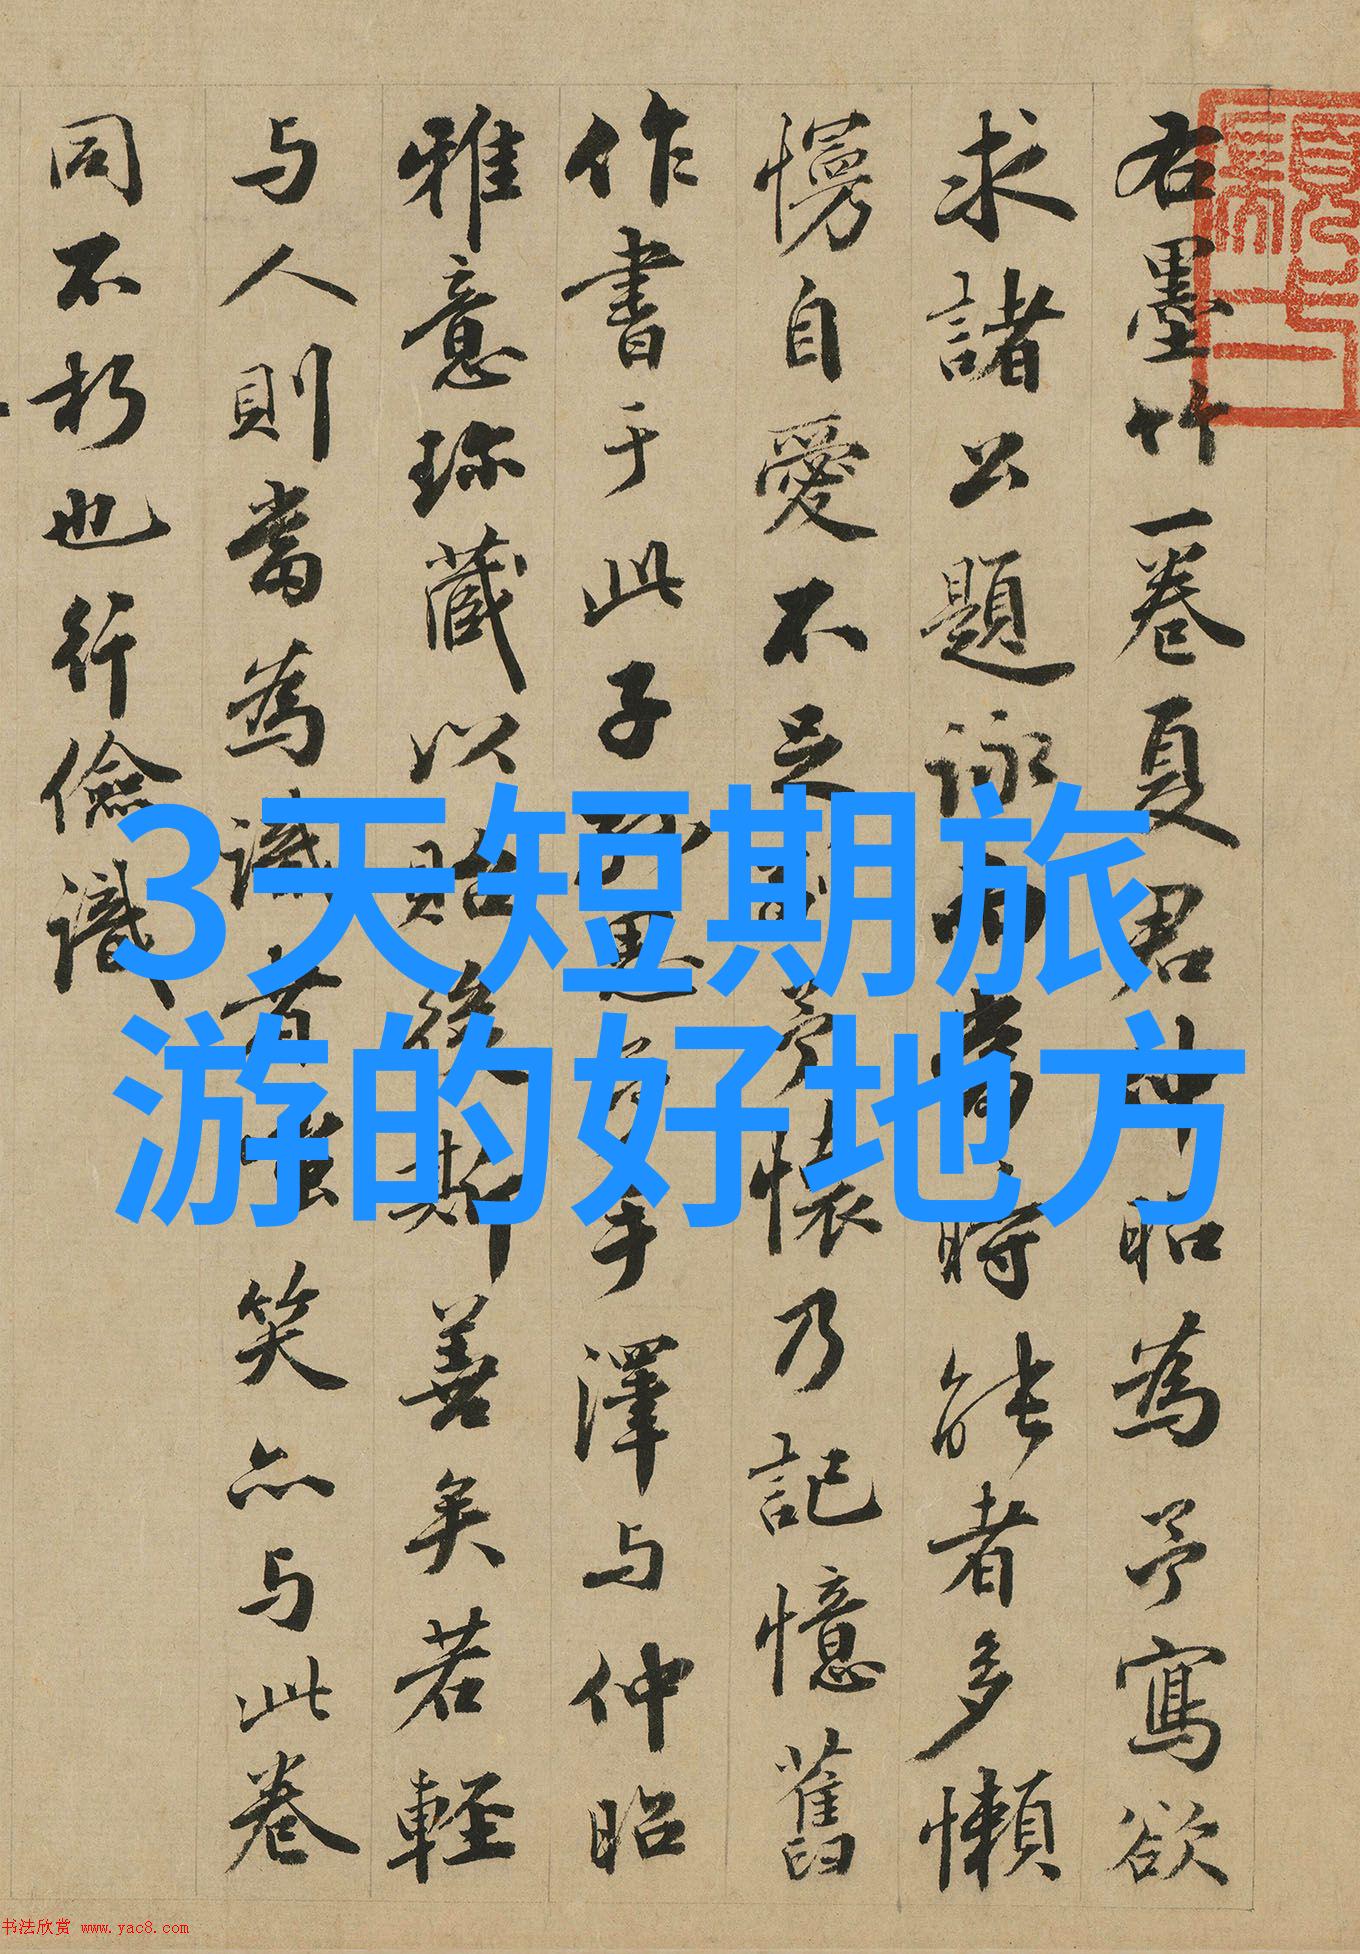 右墨竹一卷夏君仲昭為予寫欲
求諸公題詠而當時能者多懶
慢自愛不足予懷乃記憶舊
作書于此子孫思予手澤与仲昭
雅意珎藏以貽後斯善矣若輕
与人則當為識者笑亦与此卷
同不朽也行儉識
3天短期旅
游的好地方
书法欣赏 www.yac8.com